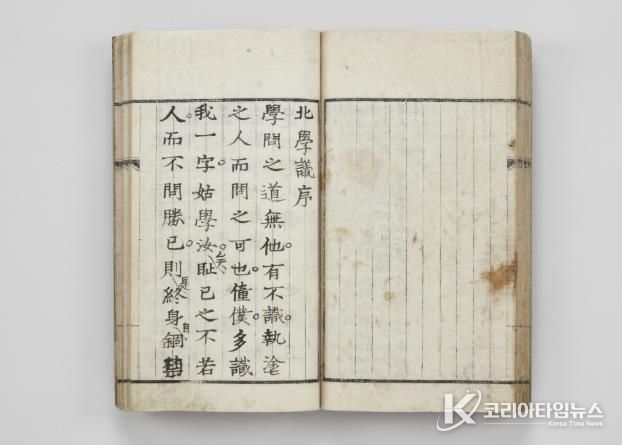 北學議序
學問之道無他。有不識。執塗
之人而問之可也。僮僕。多識
我一字。姑學汝。矣恥己之不若
人。而不問勝己。則是終身自錮
코리아타임뉴스
Korea Time News